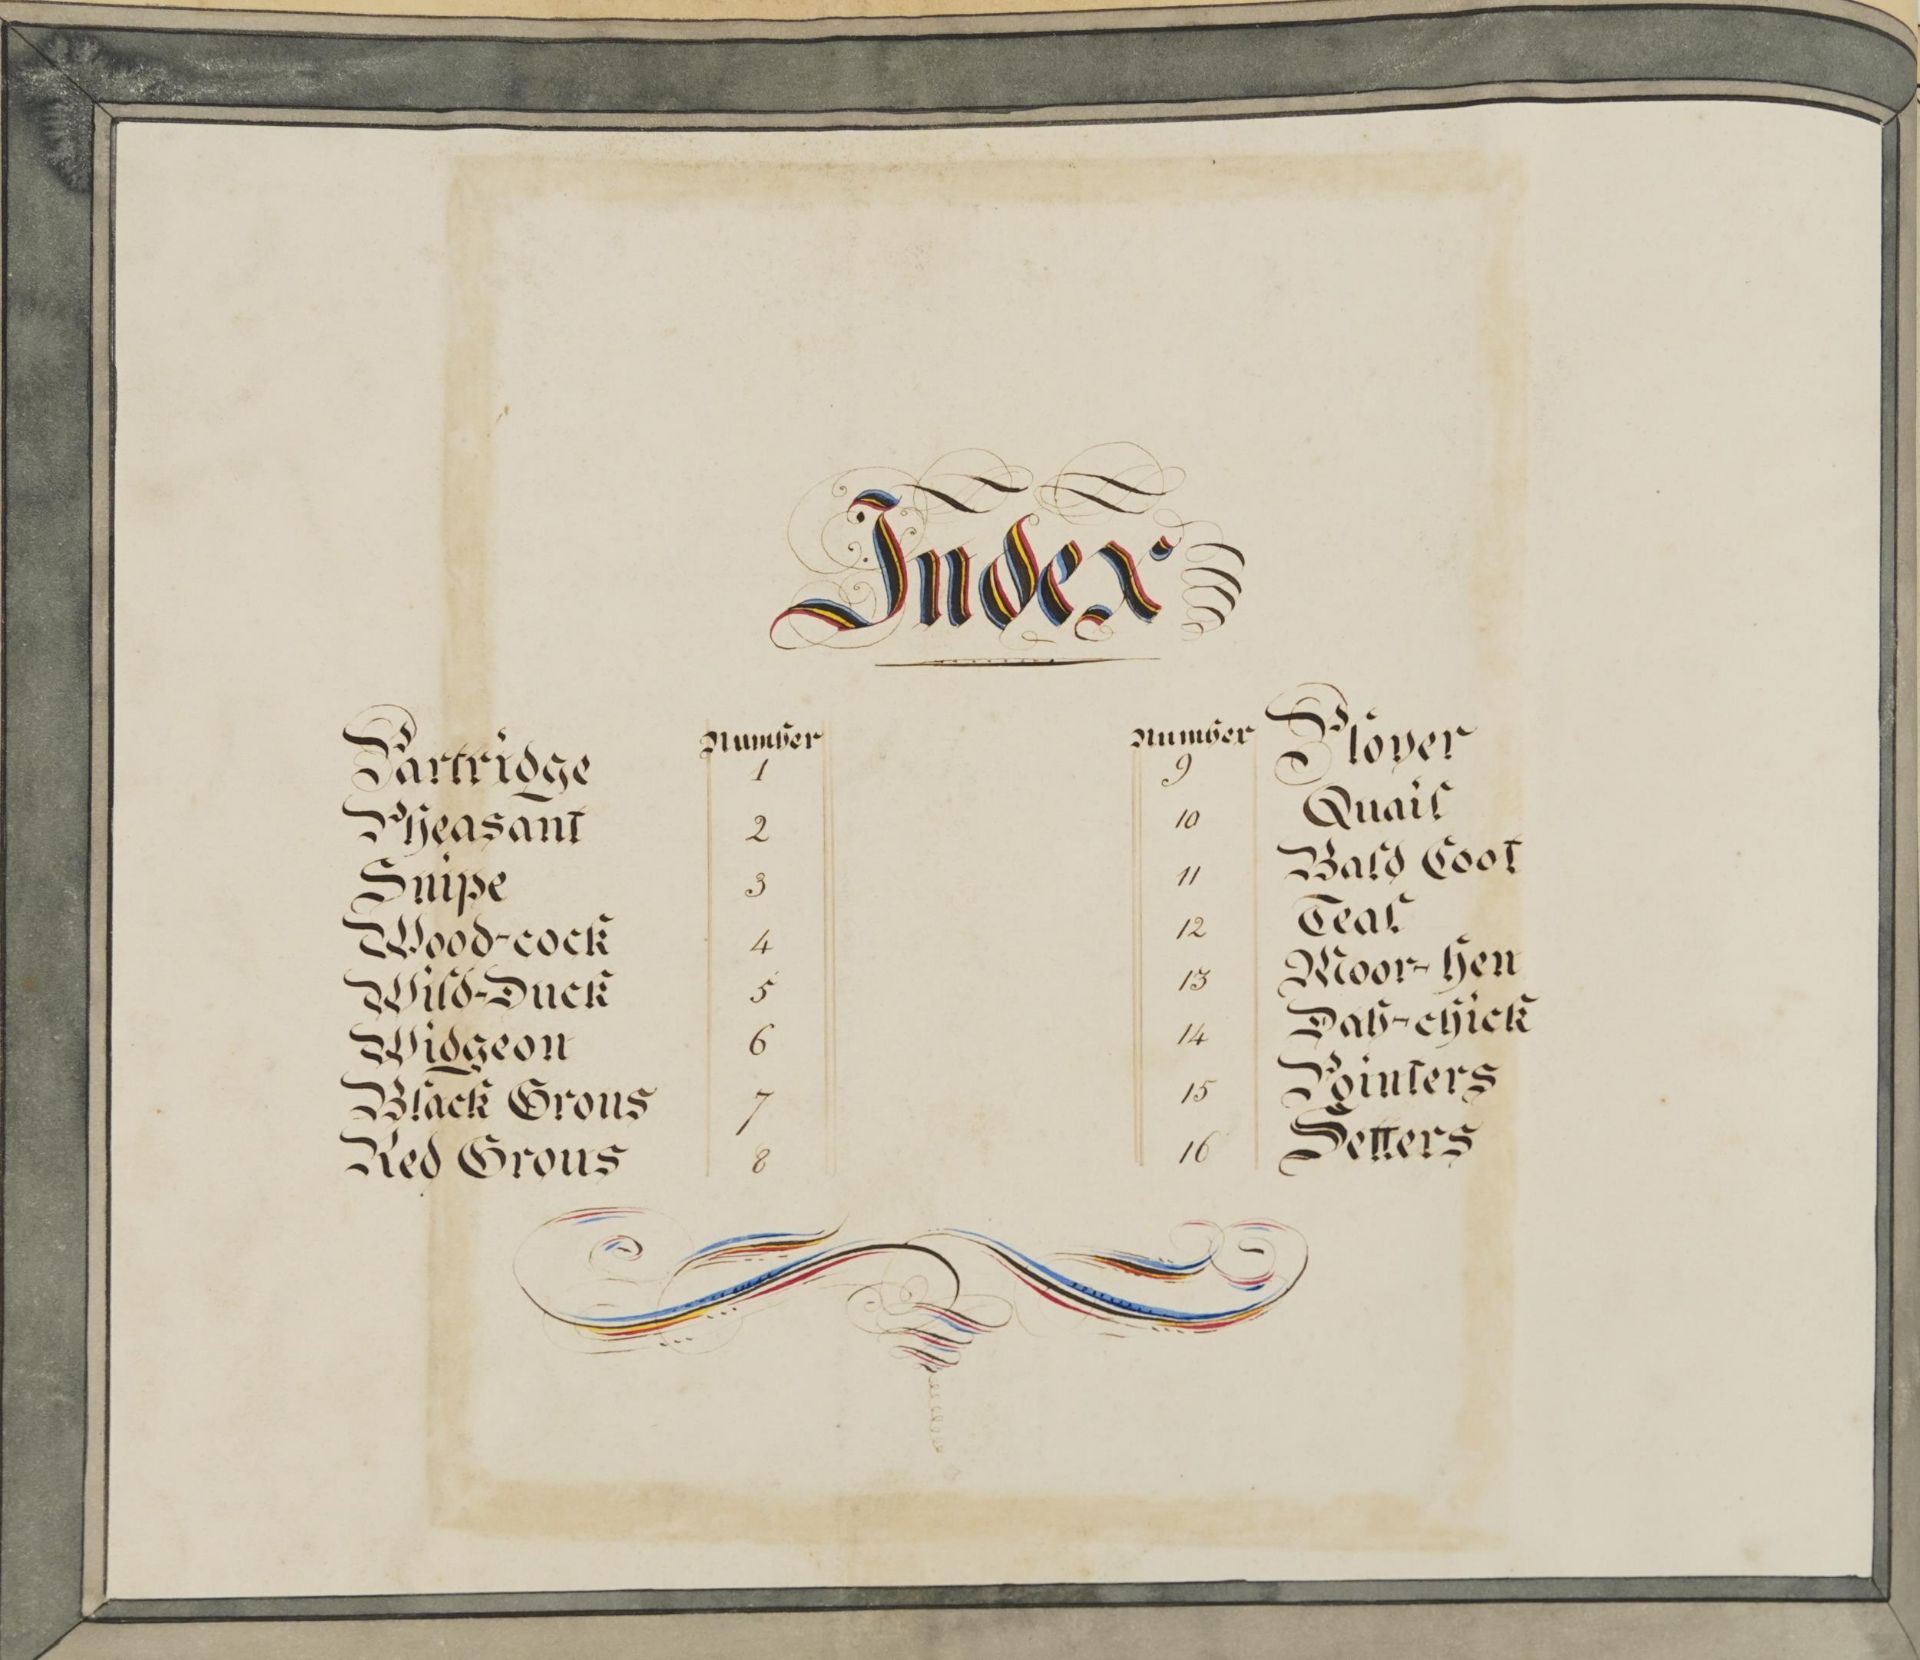 Index
Number Number
Partridge 1 9 Plover
Pheasant 2 10 Quail
Snipe 3 11 Bald Coot
Wood-cock 4 12 Teal
Wild-Duck 5 13 Moor-hen
Widgeon 6 14 Dab-chick
Black Grous 7 15 Pointers
Red Grous 8 16 Setters